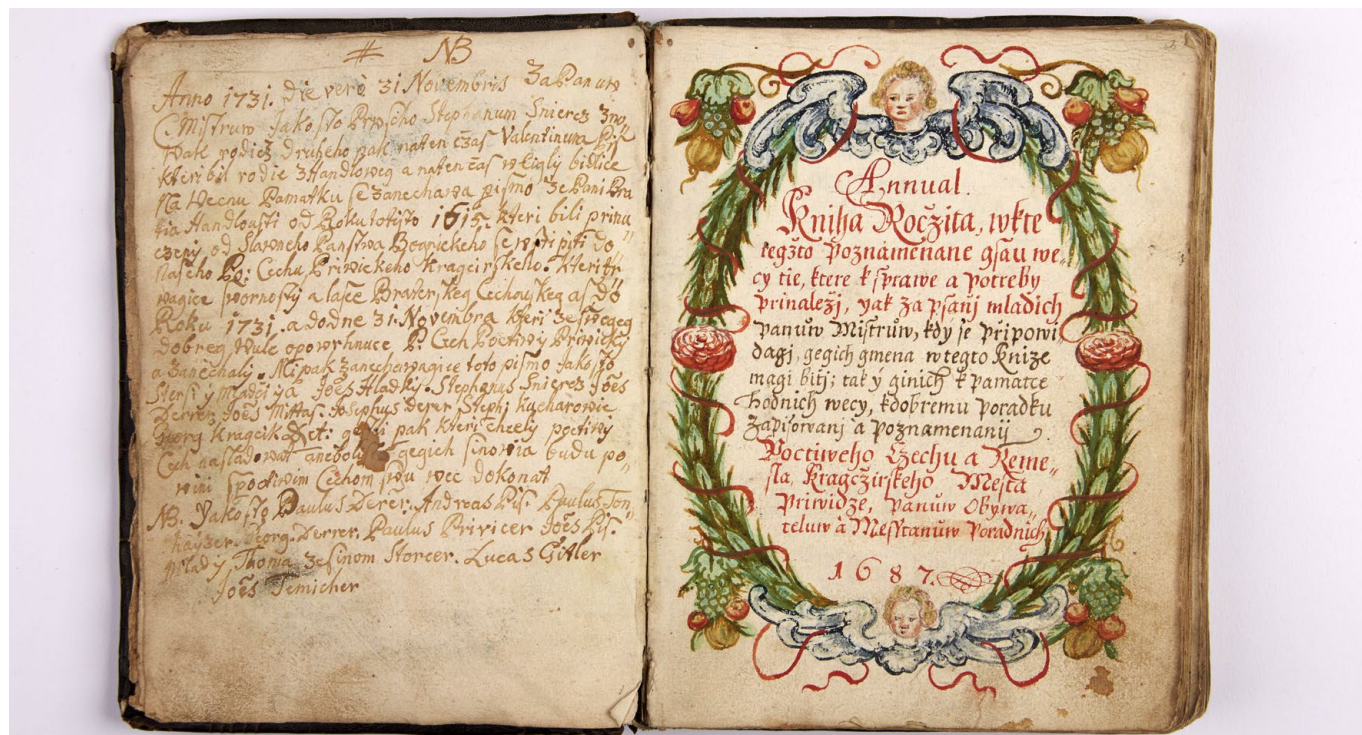 NB
Anno 1731. die vero 31. Novembris Za Panuw
Mistruw Jakosto Prwsho Stephanum Snierez
wak rodicž druheho pak naten čžas Valentinum Piss
kteri bil rodič z Handloweg a naten čas w Cigli bidlice
Na Wecnu Pamatku se zanecharva pismo že Pani Bra
tia Handlousti od Roku totisto 1615. kteri bili prinu
czeny od Slawneho Panstwa Bognickeho se wstupiti do
nasseho Po: Cechu Priwickeho Kragcirskeho. kteri tr
wagice swornosty a lasce Braterskeg Cechowskeg až do
Roku 1731. a do dne 31. Novembra kteri ze sweg
dobreg wule opowrhnuce P. Cech Poctiwy Priwicky
a zanechaly. Mi pak zanecharwagice toto pismo jakosto
Stersi y mladči ya Joēs Hladky. Stephanus Snierez Joēs
Derrer Joēs Mittas. Josephus Derer Stephj Kucharowie
Georg Kragcik Det: pak kteri chcely poctiwy
Cech nasladowat anebo gegich sinowia budu po
wini spoctiwim Cechom swu wec dokonat
NB. Jakosto Paulus Derer. Andreas Pis. Paulus Ton
hayzer. Georg. Derrer. Paulus Privicer Joēs Pis.
mlady, Thoma ze sinom Storcer. Lucas Gitler
Joēs Temicher
Annual.
KnihaRočzita, wkte
tegžto Poznamenane gsau we,
cy tie, ktere k sprawe a potreby
prinaleži, yak za psanj mladich
Panuw Mistrůw, kdy se pripowi
dagj, gegich gmena w tegto Knize
magi bitj; tak ý ginich k pamatce
hodnich wecy, k dobremu poradku
Zapisowanj a Poznamenanij
Poctiweho Czechu a Reme,
sla, Kragčzirskeho Mesta
Priwidze, Panuw Obywa,
teluw a Messtanuw Poradnich
1687.